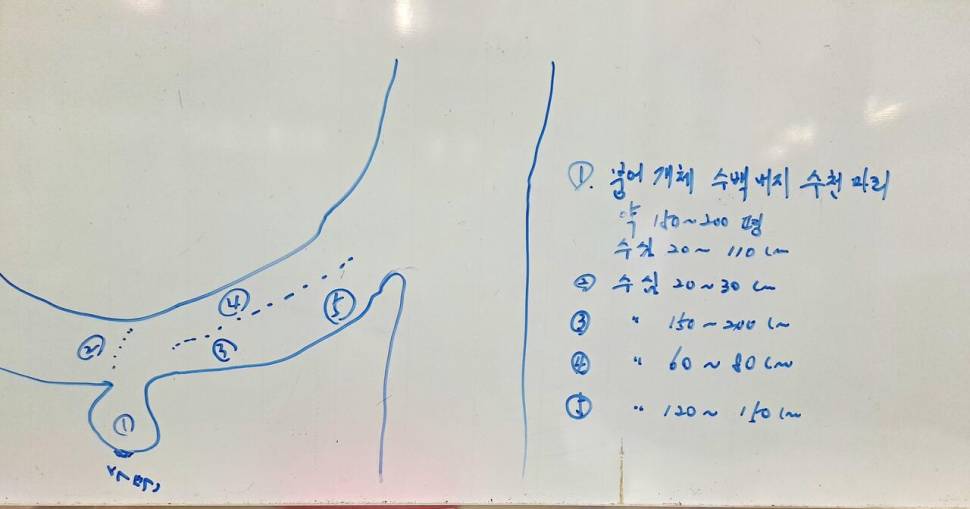 ①. 붕어 개체 수백 버지 수천 마리
약 150~200 평
수심 20~ 110 cm
② 수심 20~30 cm
③ 〃 150~200 cm
④ 〃 60~80 cm
⑤ 〃 120~ 150 cm
④
⑤
②
③
①